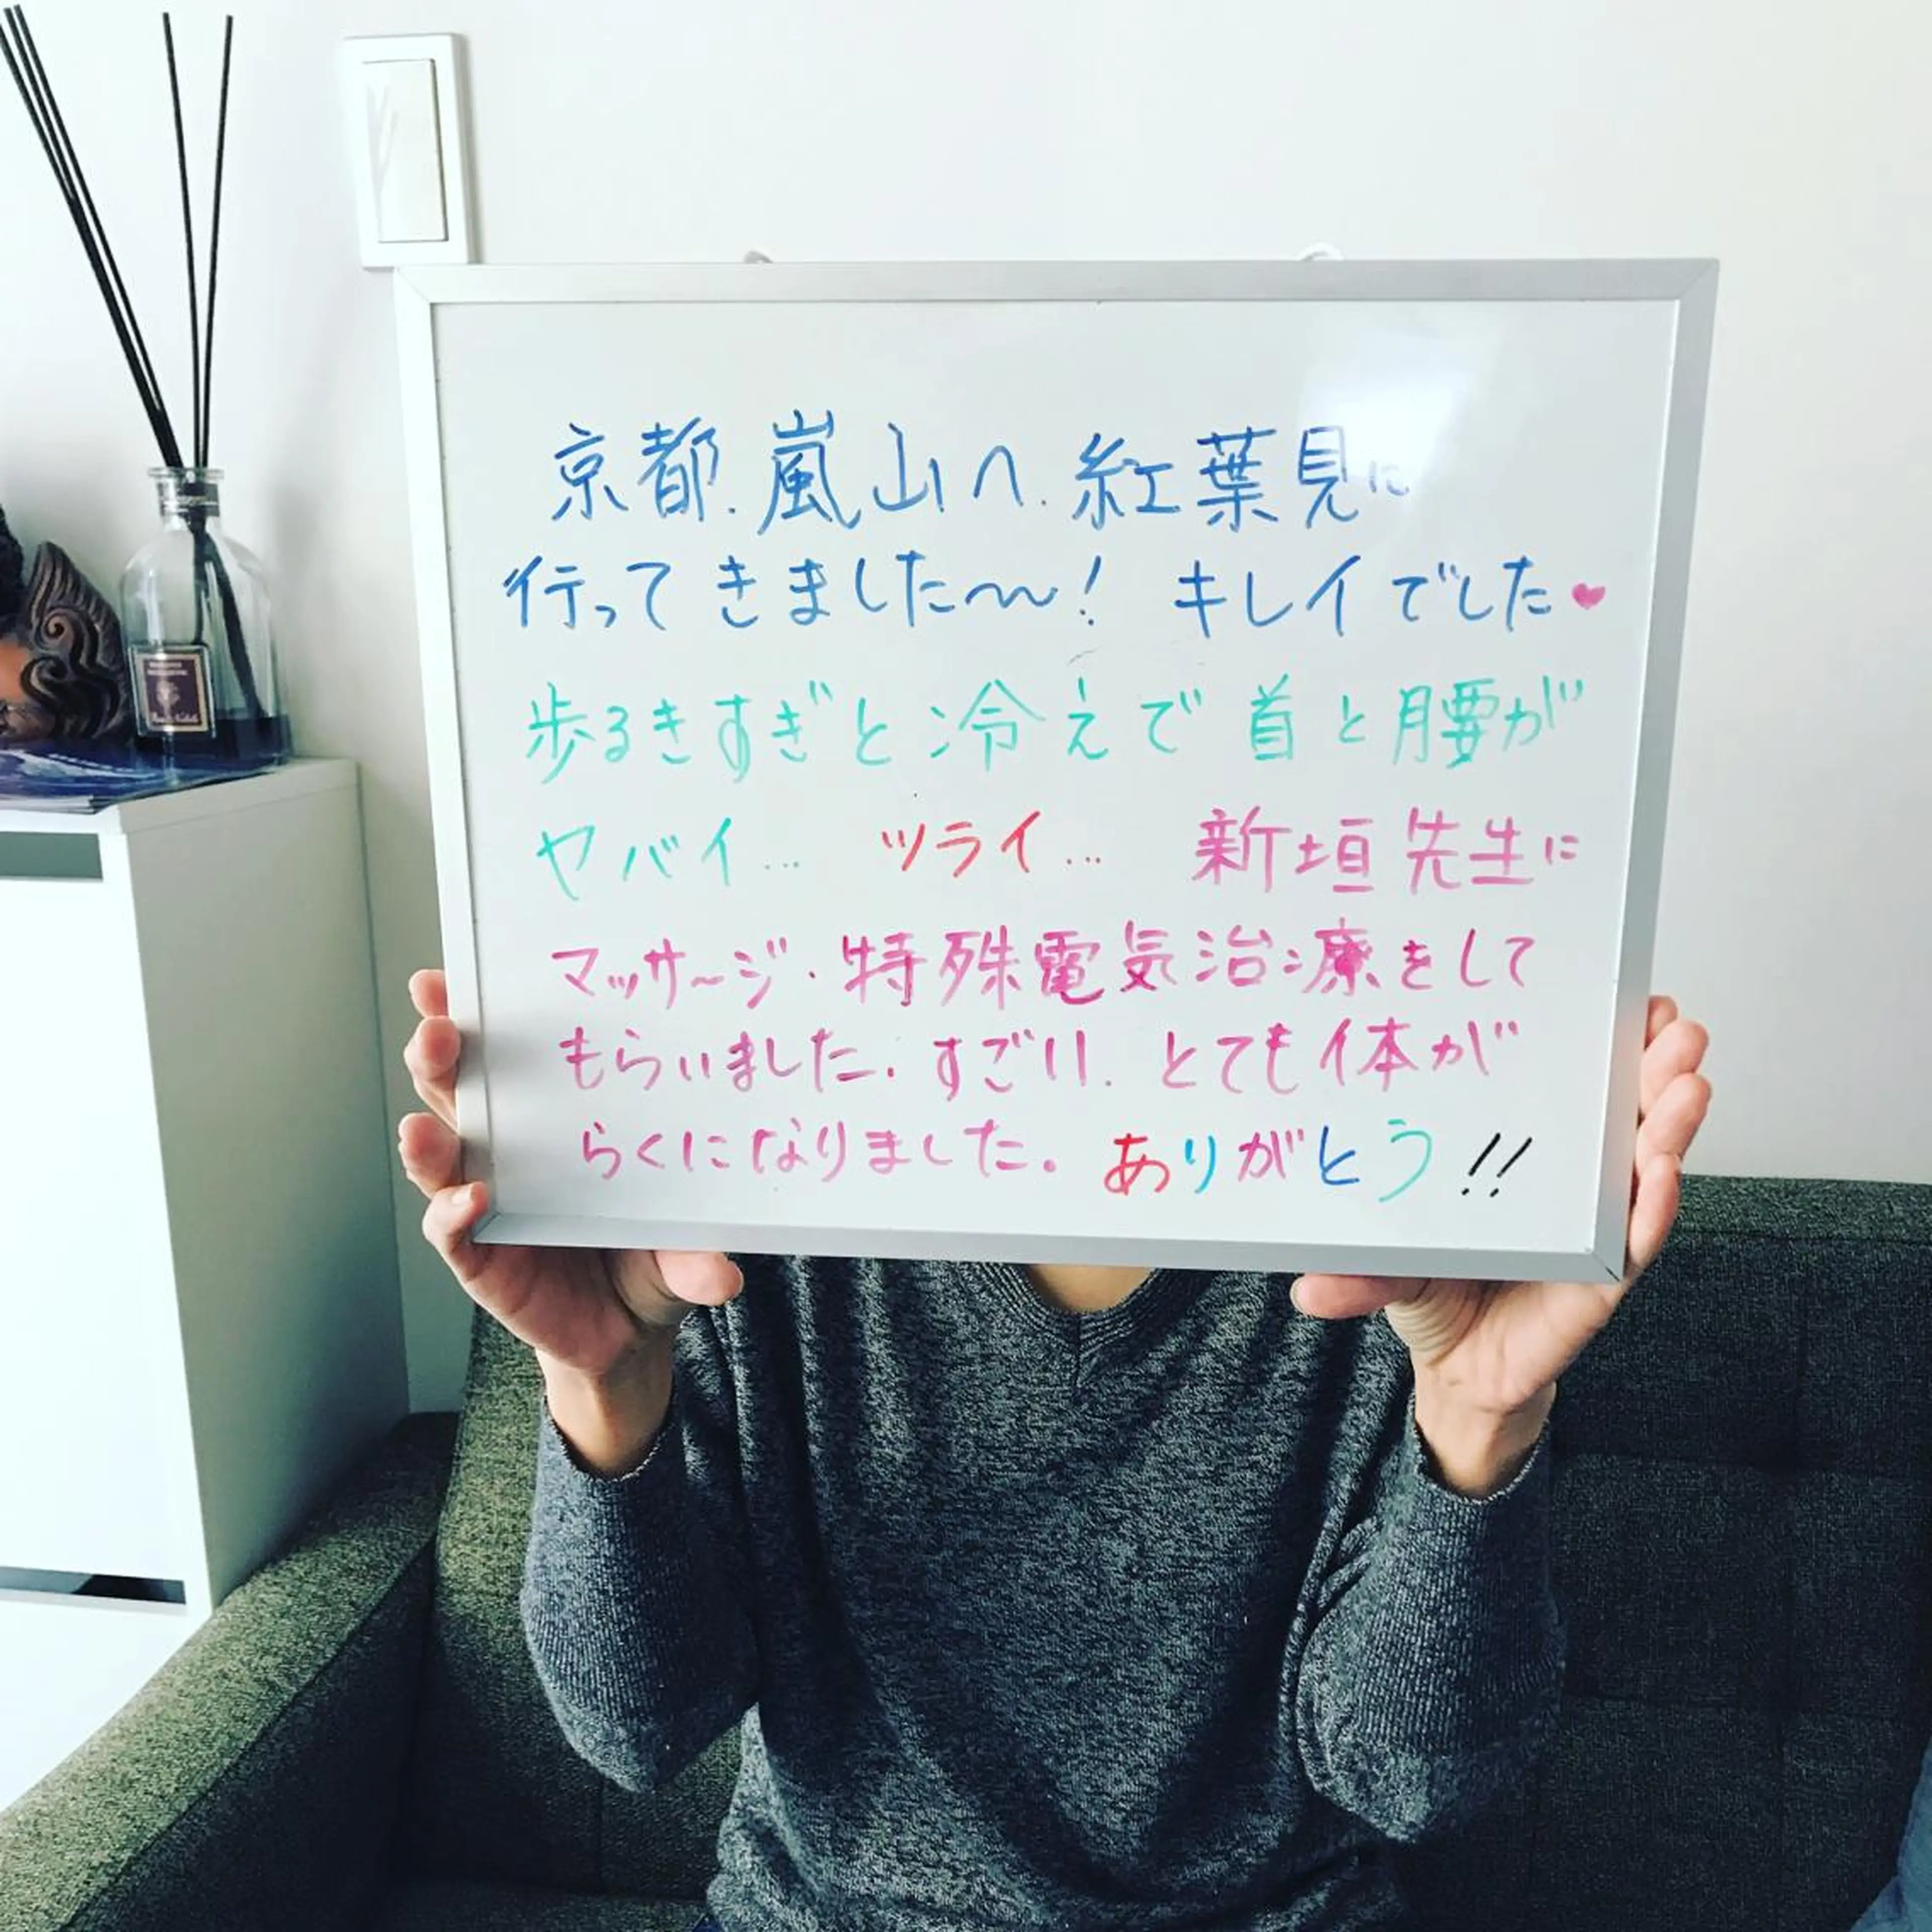 京都.嵐山へ.紅葉見に
行ってきました〜!キレイでした♥
歩るきすぎと冷えで首と腰が
ヤバイ…ツライ…新垣先生に
マッサ〜ジ・特殊電気治療をして
もらいました.すごい.とても体が
らくになりました。ありがとう!!